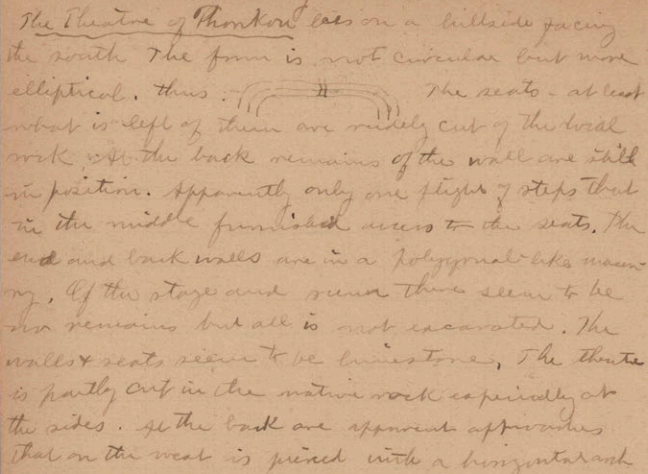 The Theatre of Thorikon lies on a hillside facing
the south The form is not circular but more
elliptical. thus. The seats - at least
what is left of them are rudely cut of the local
rock. At the back remains of the wall are still
in position. Apparently only one flight of steps that
in the middle furnished access to the seats. The
end and back walls are in a polygonal-like mason-
ry. Of the stage and there seem to be
no remains but all is not excavated. The
walls & seats seem to be limestone. The theatre
is partly cut in the native rock especially at
the sides. At the back are apparent approaches
that on the west is pierced with a horizontal arch